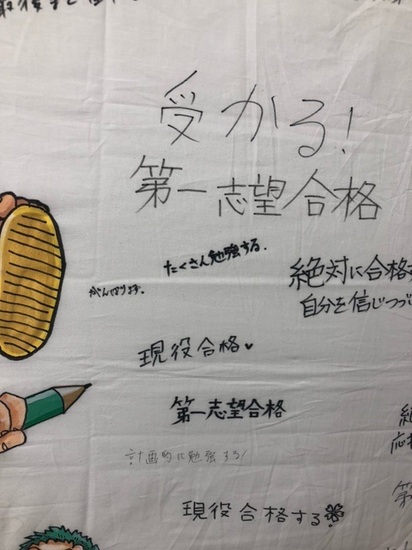 受かる!
第一志望合格
たくさん勉強する.
絶対に合格
がんばります.
自分を信じつづ
現役合格♥
第一志望合格
計画的に勉強する!
現役合格する